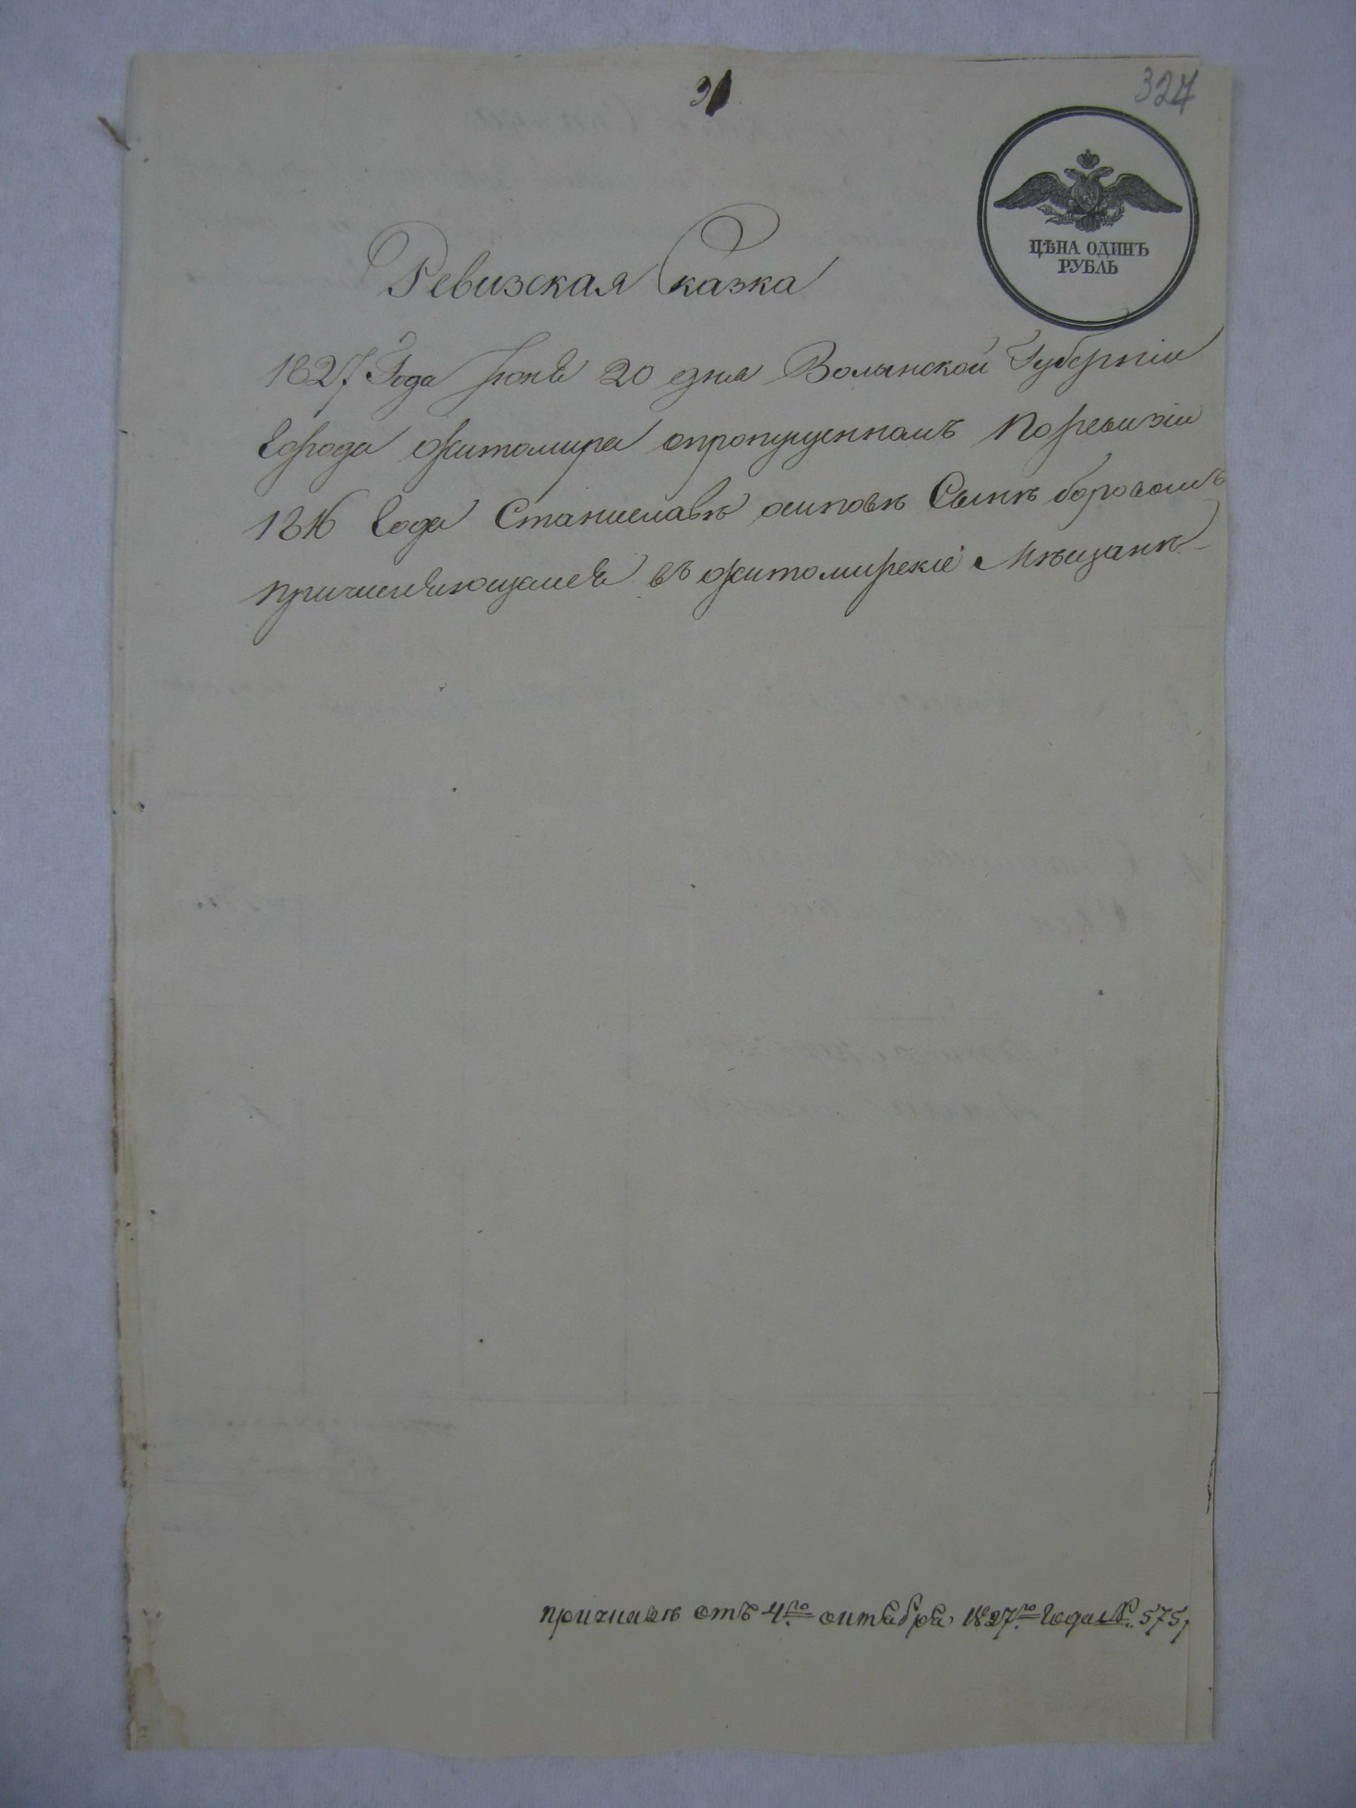 31
327
ЦѢНА ОДИНЪ
РУБЛЬ
Ревизская Сказка
1827 Года Іюня 20 дня Волынской Губерніи
города Житомира опропущенномъ Поревизіи
1816 года Станиславѣ осиповѣ Сынѣ боровомъ
причисляющемся въ житомирскіе Мѣщанѣ
причисленъ отъ 4го октября 1827го года № 575,